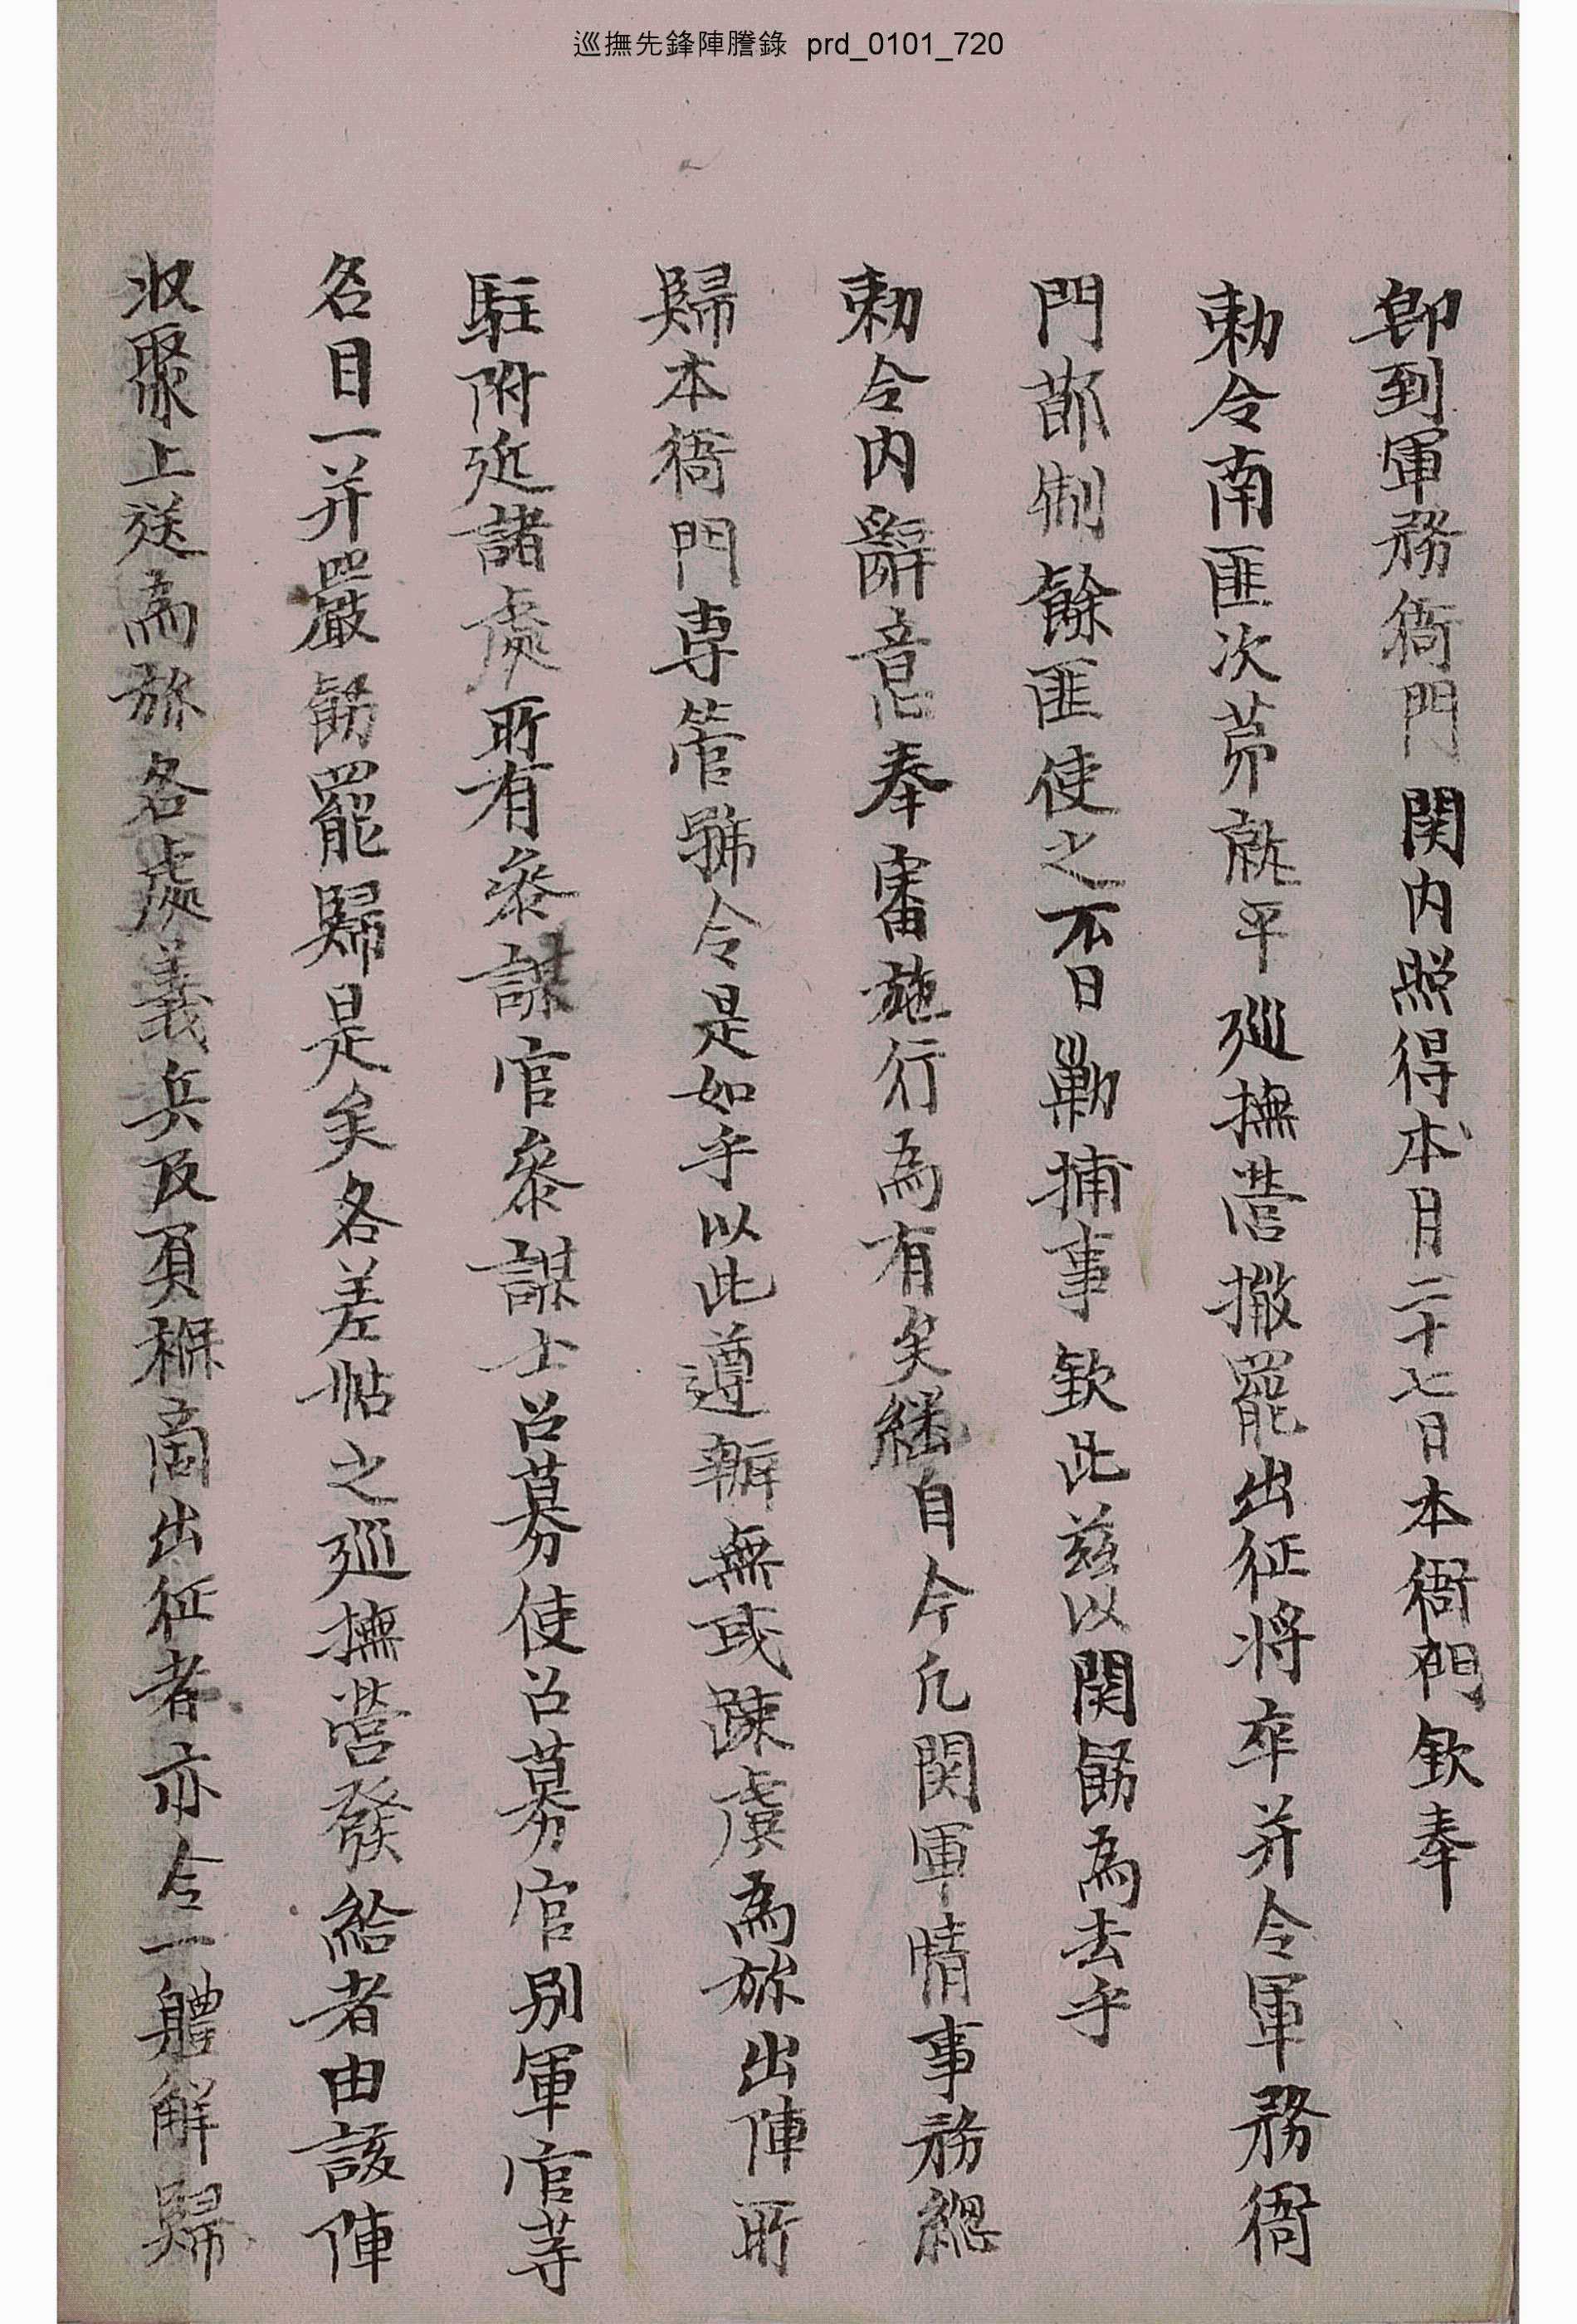 巡撫先鋒陣謄錄 prd_0101_720
卽到軍務衙門關內照得本月二十七日本衙門欽奉
勅令南匪次苐就平巡撫營撤罷出征將卒并令軍務衙
門節制餘匪使之不日勦捕事欽此玆以關飭爲去乎
勅令內辭意奉審施行爲有矣繼自今凡關軍情事務總
歸本衙門專管號令是如乎以此遵辦無或踈虞爲旀出陣所
駐附近諸處所有參謀官參謀士召募使召募官別軍官等
名目一并嚴飭罷歸是矣各差帖之巡撫營發給者由該陣
收聚上送爲旀各處義兵及負褓商出征者亦令一體解歸